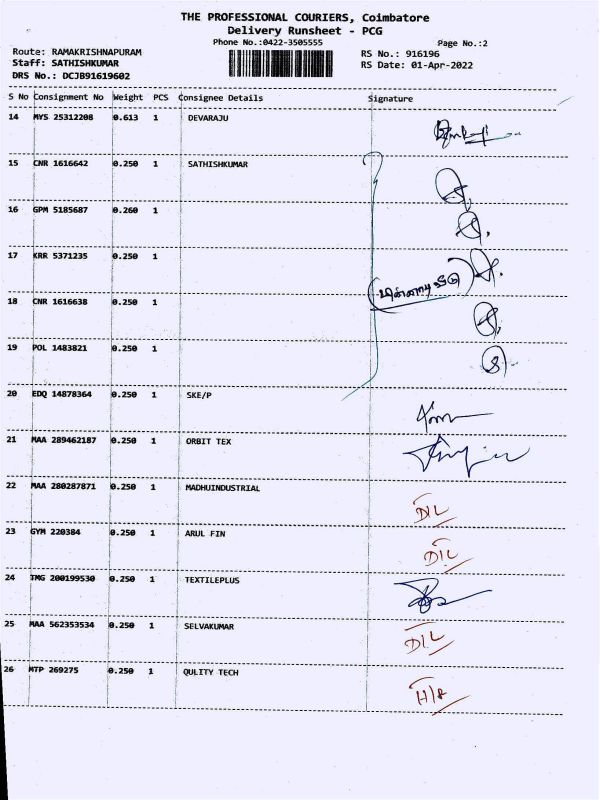 THE PROFESSIONAL COURIERS, Coimbatore
Delivery Runsheet - PCG
Phone No.:0422-3505555
Page No.:2
Route: RAMAKRISHNAPURAM
RS No.: 916196
Staff: SATHISHKUMAR
RS Date: 01-Apr-2022
DRS No.: DCJB91619602
S No Consignment No Weight PCS Consignee Details Signature
14 MYS 25312208 0.613 1 DEVARAJU
15 CNR 1616642 0.250 1 SATHISHKUMAR
16 GPM 5185687 0.260 1
17 KRR 5371235 0.250 1
18 CNR 1616638 0.250 1
19 POL 1483821 0.250 1
20 EDQ 14878364 0.250 1 SKE/P
21 MAA 289462187 0.250 1 ORBIT TEX
22 MAA 280287871 0.250 1 MADHUINDUSTRIAL D/L
23 GYM 220384 0.250 1 ARUL FIN D/L
24 TMG 200199530 0.250 1 TEXTILEPLUS
25 MAA 562353534 0.250 1 SELVAKUMAR D/L
26 MTP 269275 0.250 1 QULITY TECH